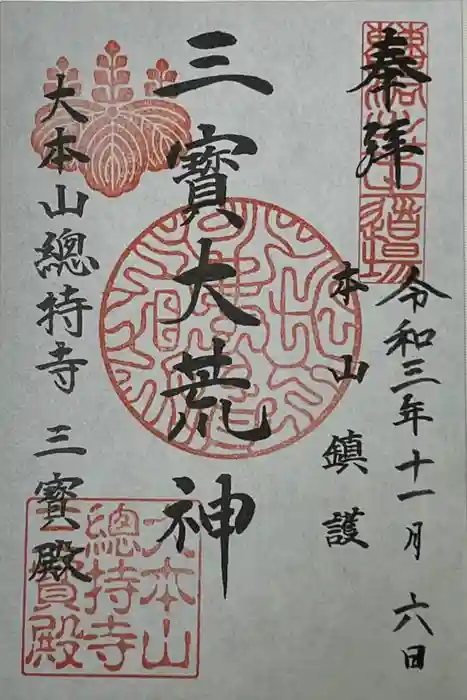 奉拝
令和三年十一月六日
本山
鎮護
三寳大荒神
大本山總持寺 三寳殿
大本山
總持寺
三寳殿